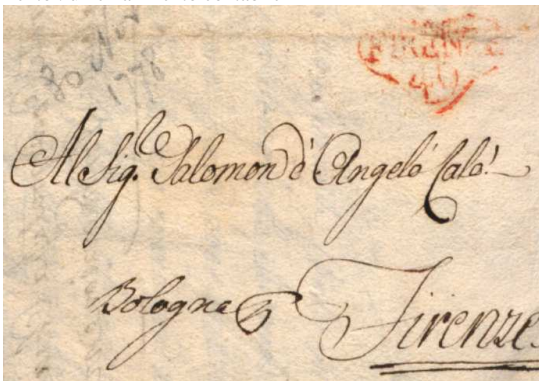 30 Nov
1778
FIRENZE
40
Al Sig.le Salomon d' Angelo Calò
Bologna Firenze